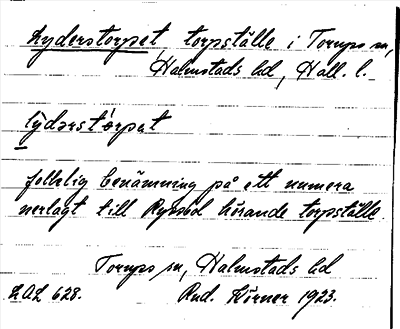 Lyderstorpet, torpställe i Torups sn,
Halmstads hd, Hall. l.
lýdərst'ɷrpət
folklig benämning på ett numera
nerlagt till Ryssbol hörande torpställe.
Torups sn, Halmstads hd
LAL 628. Rud. Körner 1923.